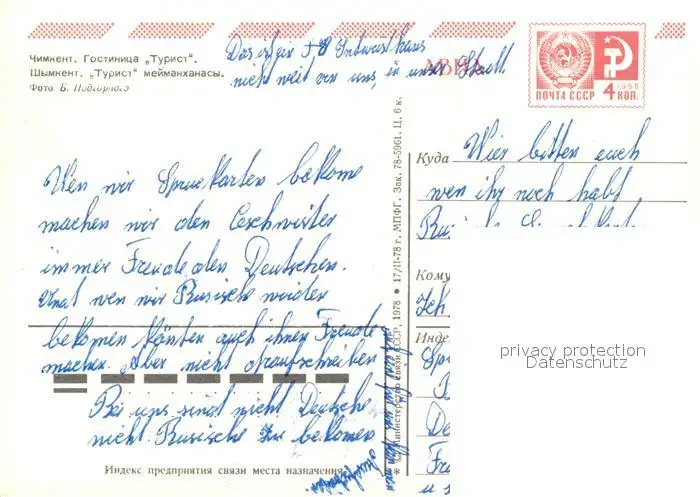 Чимкент. Гостиница „Турист".
Шымкент. „Турист" мейманханасы.
Фото Б. Подгорного
Das ist ein Inturisthaus
nicht weit von uns, in unser Stadt.
АВИА
ПОЧТА СССР 4 КОП.
1966
Wen wir Spruckarten bekome
machen wir den Geschwister
immer Freude den Deutschen.
Und wen wir Rusische wieder
bekomen könten auch ihnen Freude
machen. Aber nicht draufschreiben
Bei uns sind nicht Deutsche
nicht Rusische zu bekomen
Индекс предприятия связи места назначения
* © Министерство связи СССР, 1978 ● 17/II-78 г. МПФГ. Зак. 78-5961. Ц. 6 к.
Куда
Wier bitten euch
wen ihr noch habt
Кому
Ich
Инде
privacy protection
Datenschutz